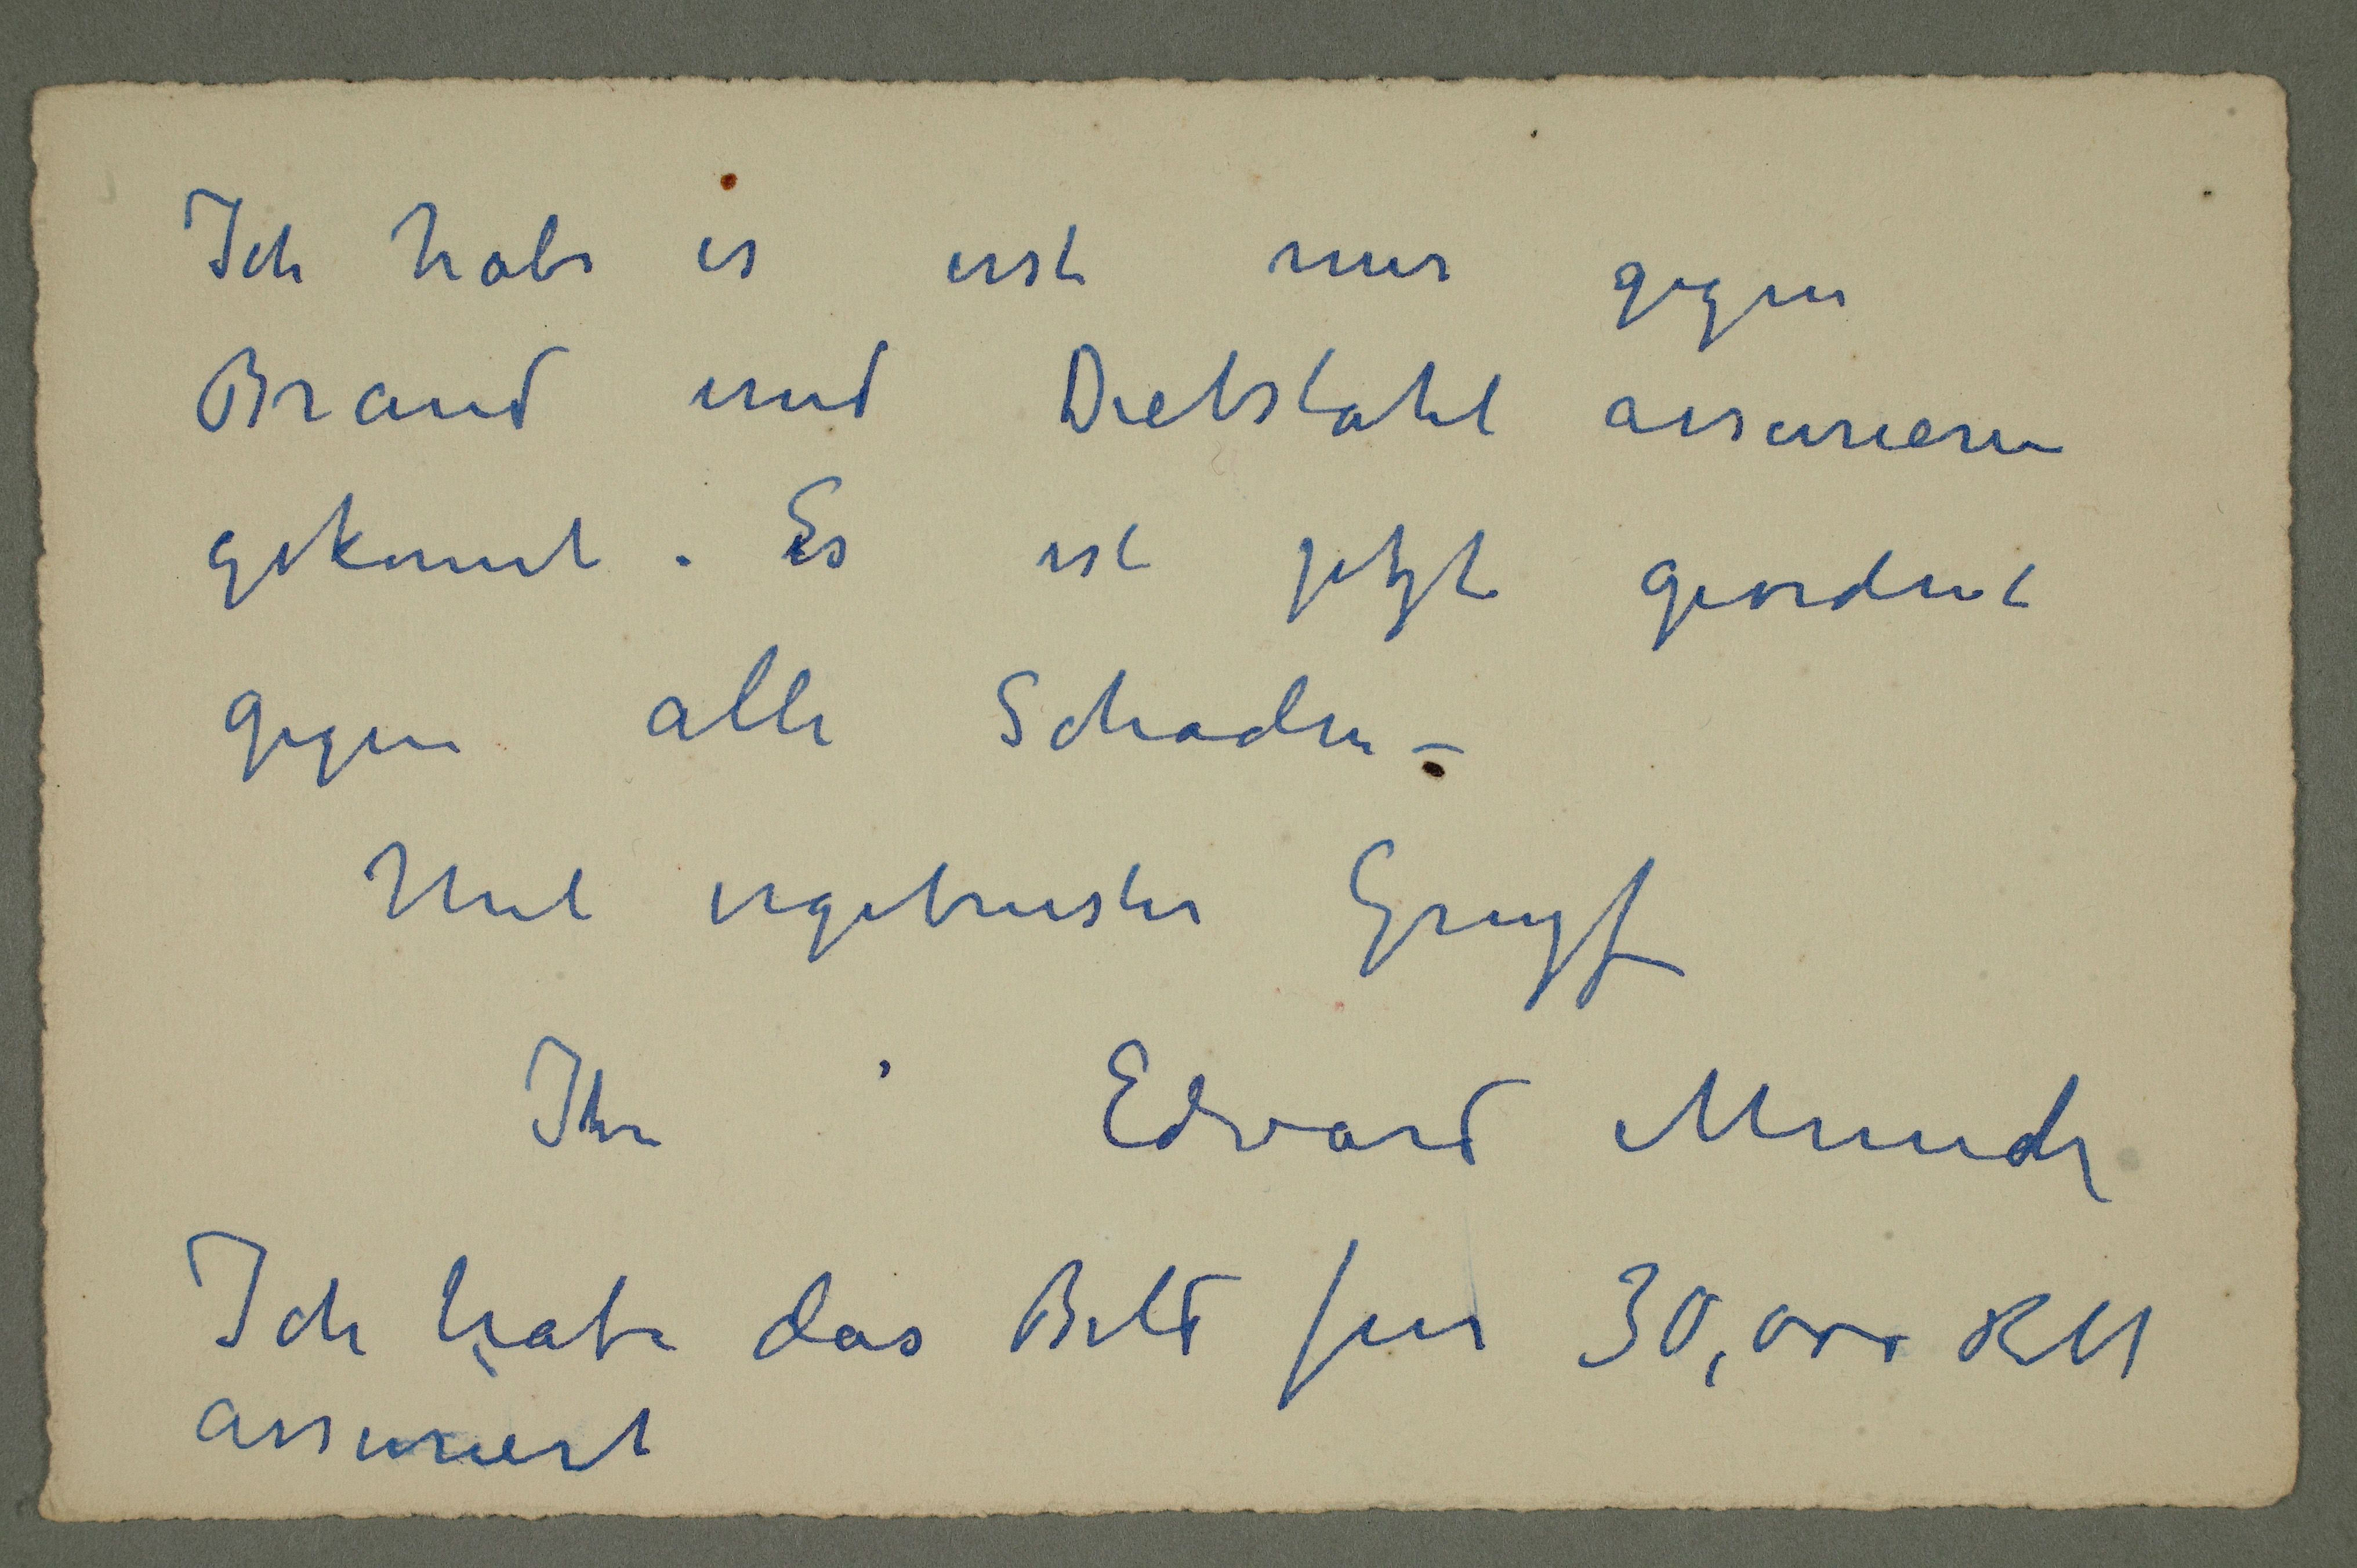 Ich habe es erst nur gegen
Brand und Diebstahl assurieren
gekonnt. Es ist jetzt geordnet
gegen alle Schaden –
Mit ergebenster Gruss
Ihr Edvard Munch
Ich habe das Bild fur 30,000 RM
assuriert